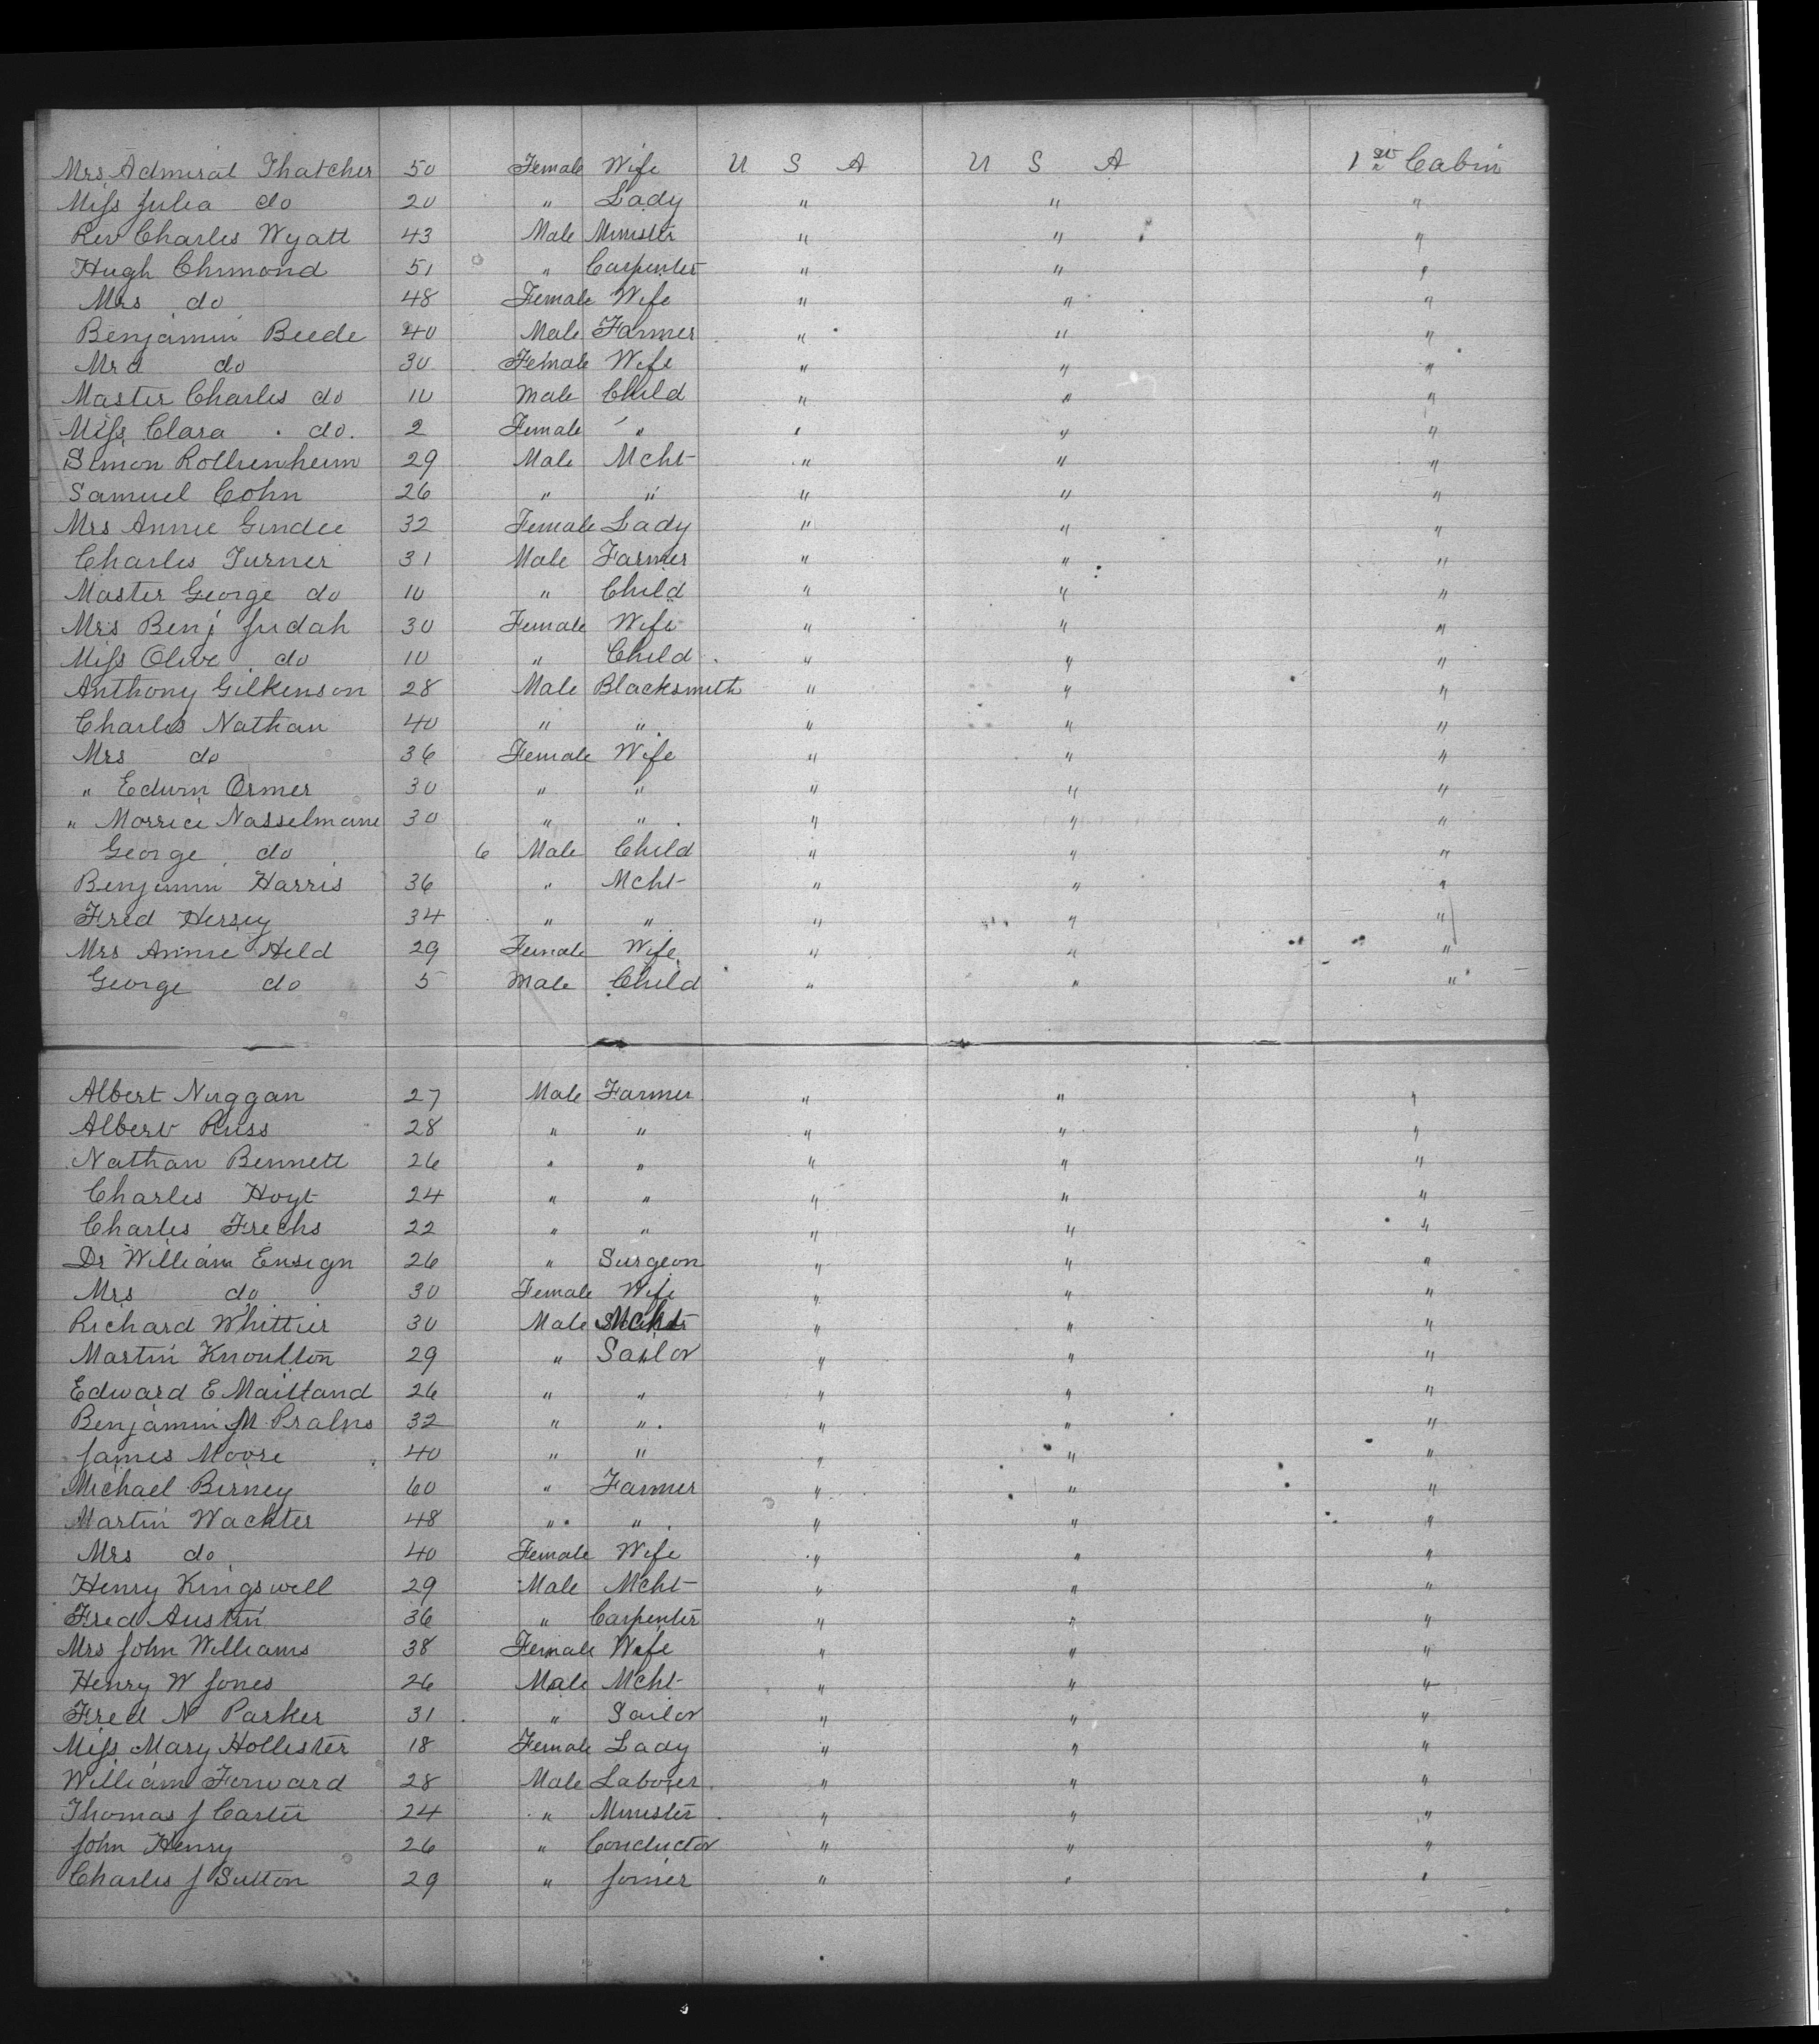 Mrs Admiral Thatcher 50 Female Wife U S A U S A 1st Cabin
Miss Julia do 20 " Lady " " "
Rev Charles Wyatt 43 Male Minister " " "
Hugh Chimond 51 " Carpenter " " "
Mrs do 48 Female Wife " " "
Benjamin Beede 40 Male Farmer " " "
Mrs do 30 Female Wife " " "
Master Charles do 10 Male Child " " "
Miss Clara do. 2 Female " " " "
Simon 29 Male Mcht " " "
Samuel Cohn 26 " " " " "
Mrs Annie Gindee 32 Female Lady " " "
Charles Turner 31 Male Farmer " " "
Master George do 10 " Child " " "
Mrs Benj Judah 30 Female Wife " " "
Miss Olive do 10 " Child " " "
Anthony Gilkenson 28 Male Blacksmith " " "
Charles Nathan 40 " " " " "
Mrs do 36 Female Wife " " "
" Edwin Ormer 30 " " " " "
" Morrice Nasselmane 30 " " " " "
George do 6 Male Child " " "
Benjamin Harris 36 " Mcht " " "
Fred Hersey 34 " " " " "
Mrs Annie Held 29 Female Wife " " "
George do 5 Male Child " " "
Albert Nuggan 27 Male Farmer " " "
Albert Russ 28 " " " " "
Nathan Bennett 26 " " " " "
Charles Hoyt 24 " " " " "
Charles Frechs 22 " " " " "
Dr William Ensign 26 " Surgeon " " "
Mrs do 30 Female Wife " " "
Richard Whittier 30 Male Mcht " " "
Martin Knoulton 29 " Sailor " " "
Edward E Maitland 26 " " " " "
Benjamin M 32 " " " " "
James Moore 40 " " " " "
Michael Birney 60 " Farmer " " "
Martin Wachter 48 " " " " "
Mrs do 40 Female Wife " " "
Henry Kingswell 29 Male Mcht " " "
Fred Austin 36 " Carpenter " " "
Mrs John Williams 38 Female Wife " " "
Henry W Jones 26 Male Mcht " " "
Fred N Parker 31 " Sailor " " "
Miss Mary Hollister 18 Female Lady " " "
William Forward 28 Male Laborer " " "
Thomas J Carter 24 " Minister " " "
John Henry 26 " Conductor " " "
Charles J Sutton 29 " Joiner " " "